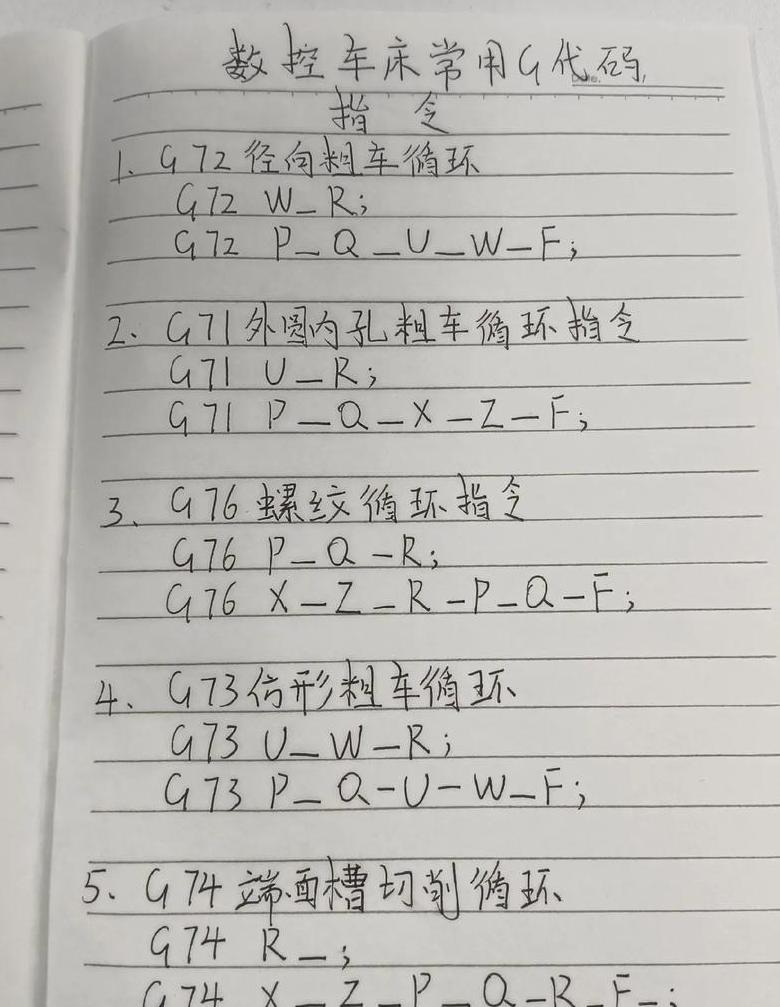 数控车床常用G代码
指令
1. G72径向粗车循环
G72 W_R;
G72 P_Q_U_W_F;
2、G71外圆内孔粗车循环指令
G71 U_R;
G71 P_Q_X_Z_F;
3、G76螺纹循环指令
G76 P_Q_R;
G76 X_Z_R_P_Q_F;
4、G73仿形粗车循环
G73 U_W_R;
G73 P_Q_U_W_F;
5、G74端面槽切削循环
G74 R_;
G74 X_Z_P_Q_R_F_;